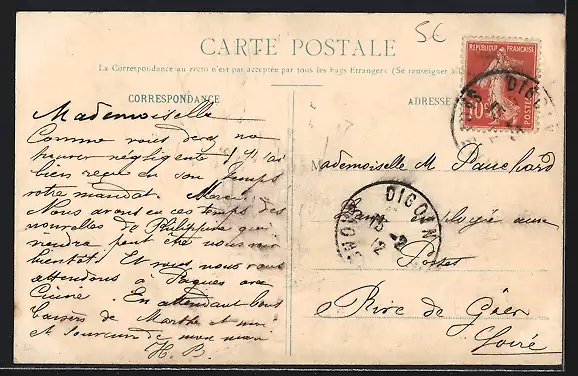 5€
CARTE POSTALE
La Correspondance au recto n'est pas acceptée par tous les Pays Etrangers (Se renseigner à
CORRESPONDANCE
ADRESSE
REPUBLIQUE FRANÇAISE
10c
POSTES
DIGOIN
15 -2
12
Mademoiselle
Comme vous devez me
trouver négligente j'ai
bien reçu en son temps
votre mandat. Merci
Nous avons eu ces temps des
nouvelles de Philippine qui
viendra peut être nous voir
bientôt. Et vous nous vous
attendons à Pâques avec
En attendant bons
baisers de Marthe et moi
et souvenir de mon mari
H. B.
Mademoiselle M Pauchard
employée aux
Postes
Rive de Gier
Loire